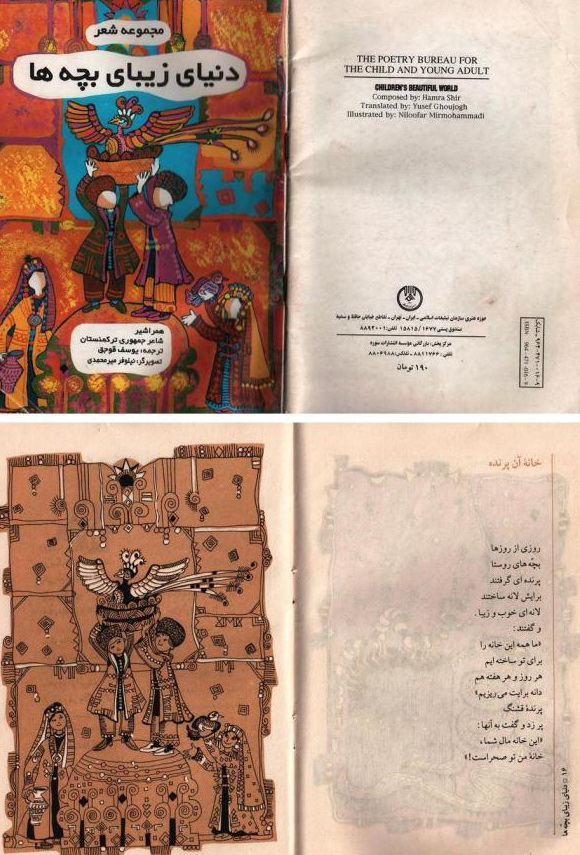 مجموعه شعر
دنیای زیبای بچه ها
همراشیر
شاعر جمهوری ترکمنستان
ترجمه: یوسف قوجق
تصویرگر: نیلوفر میرمحمدی
THE POETRY BUREAU FOR
THE CHILD AND YOUNG ADULT
CHILDREN'S BEAUTIFUL WORLD
Composed by: Hamra Shir
Translated by: Yusef Ghoujogh
Illustrated by: Niloofar Mirmohammadi
حوزه هنری سازمان تبلیغات اسلامی ـ ایران ـ تهران ـ تقاطع خیابانی حافظ و سمیه
صندوق پستی ۱۵۸۱۵/۱۶۷۷ تلفن: ۸۸۹۲۰۰۱
مرکز پخش: بازرگانی مؤسسه انتشارات سوره
تلفن: ۸۸۱۱۷۶۶ ـ تلفکس: ۸۸۰۶۹۸۸
۱۹۰ تومان
خانهٔ آن پرنده
روزی از روزها
بچّه های روستا
پرنده ای گرفتند
برایش لانه ساختند
لانه ای خوب و زیبا .
و گفتند :
«ما همه این خانه را
برای تو ساخته ایم
هر روز و هر هفته هم
دانه برایت می ریزیم»
پرندهٔ قشنگ
پر زد و گفت به آنها :
«این خانه مال شما،
خانهٔ من تو صحراست!»
۱۶ □ دنیای زیبای بچه ها